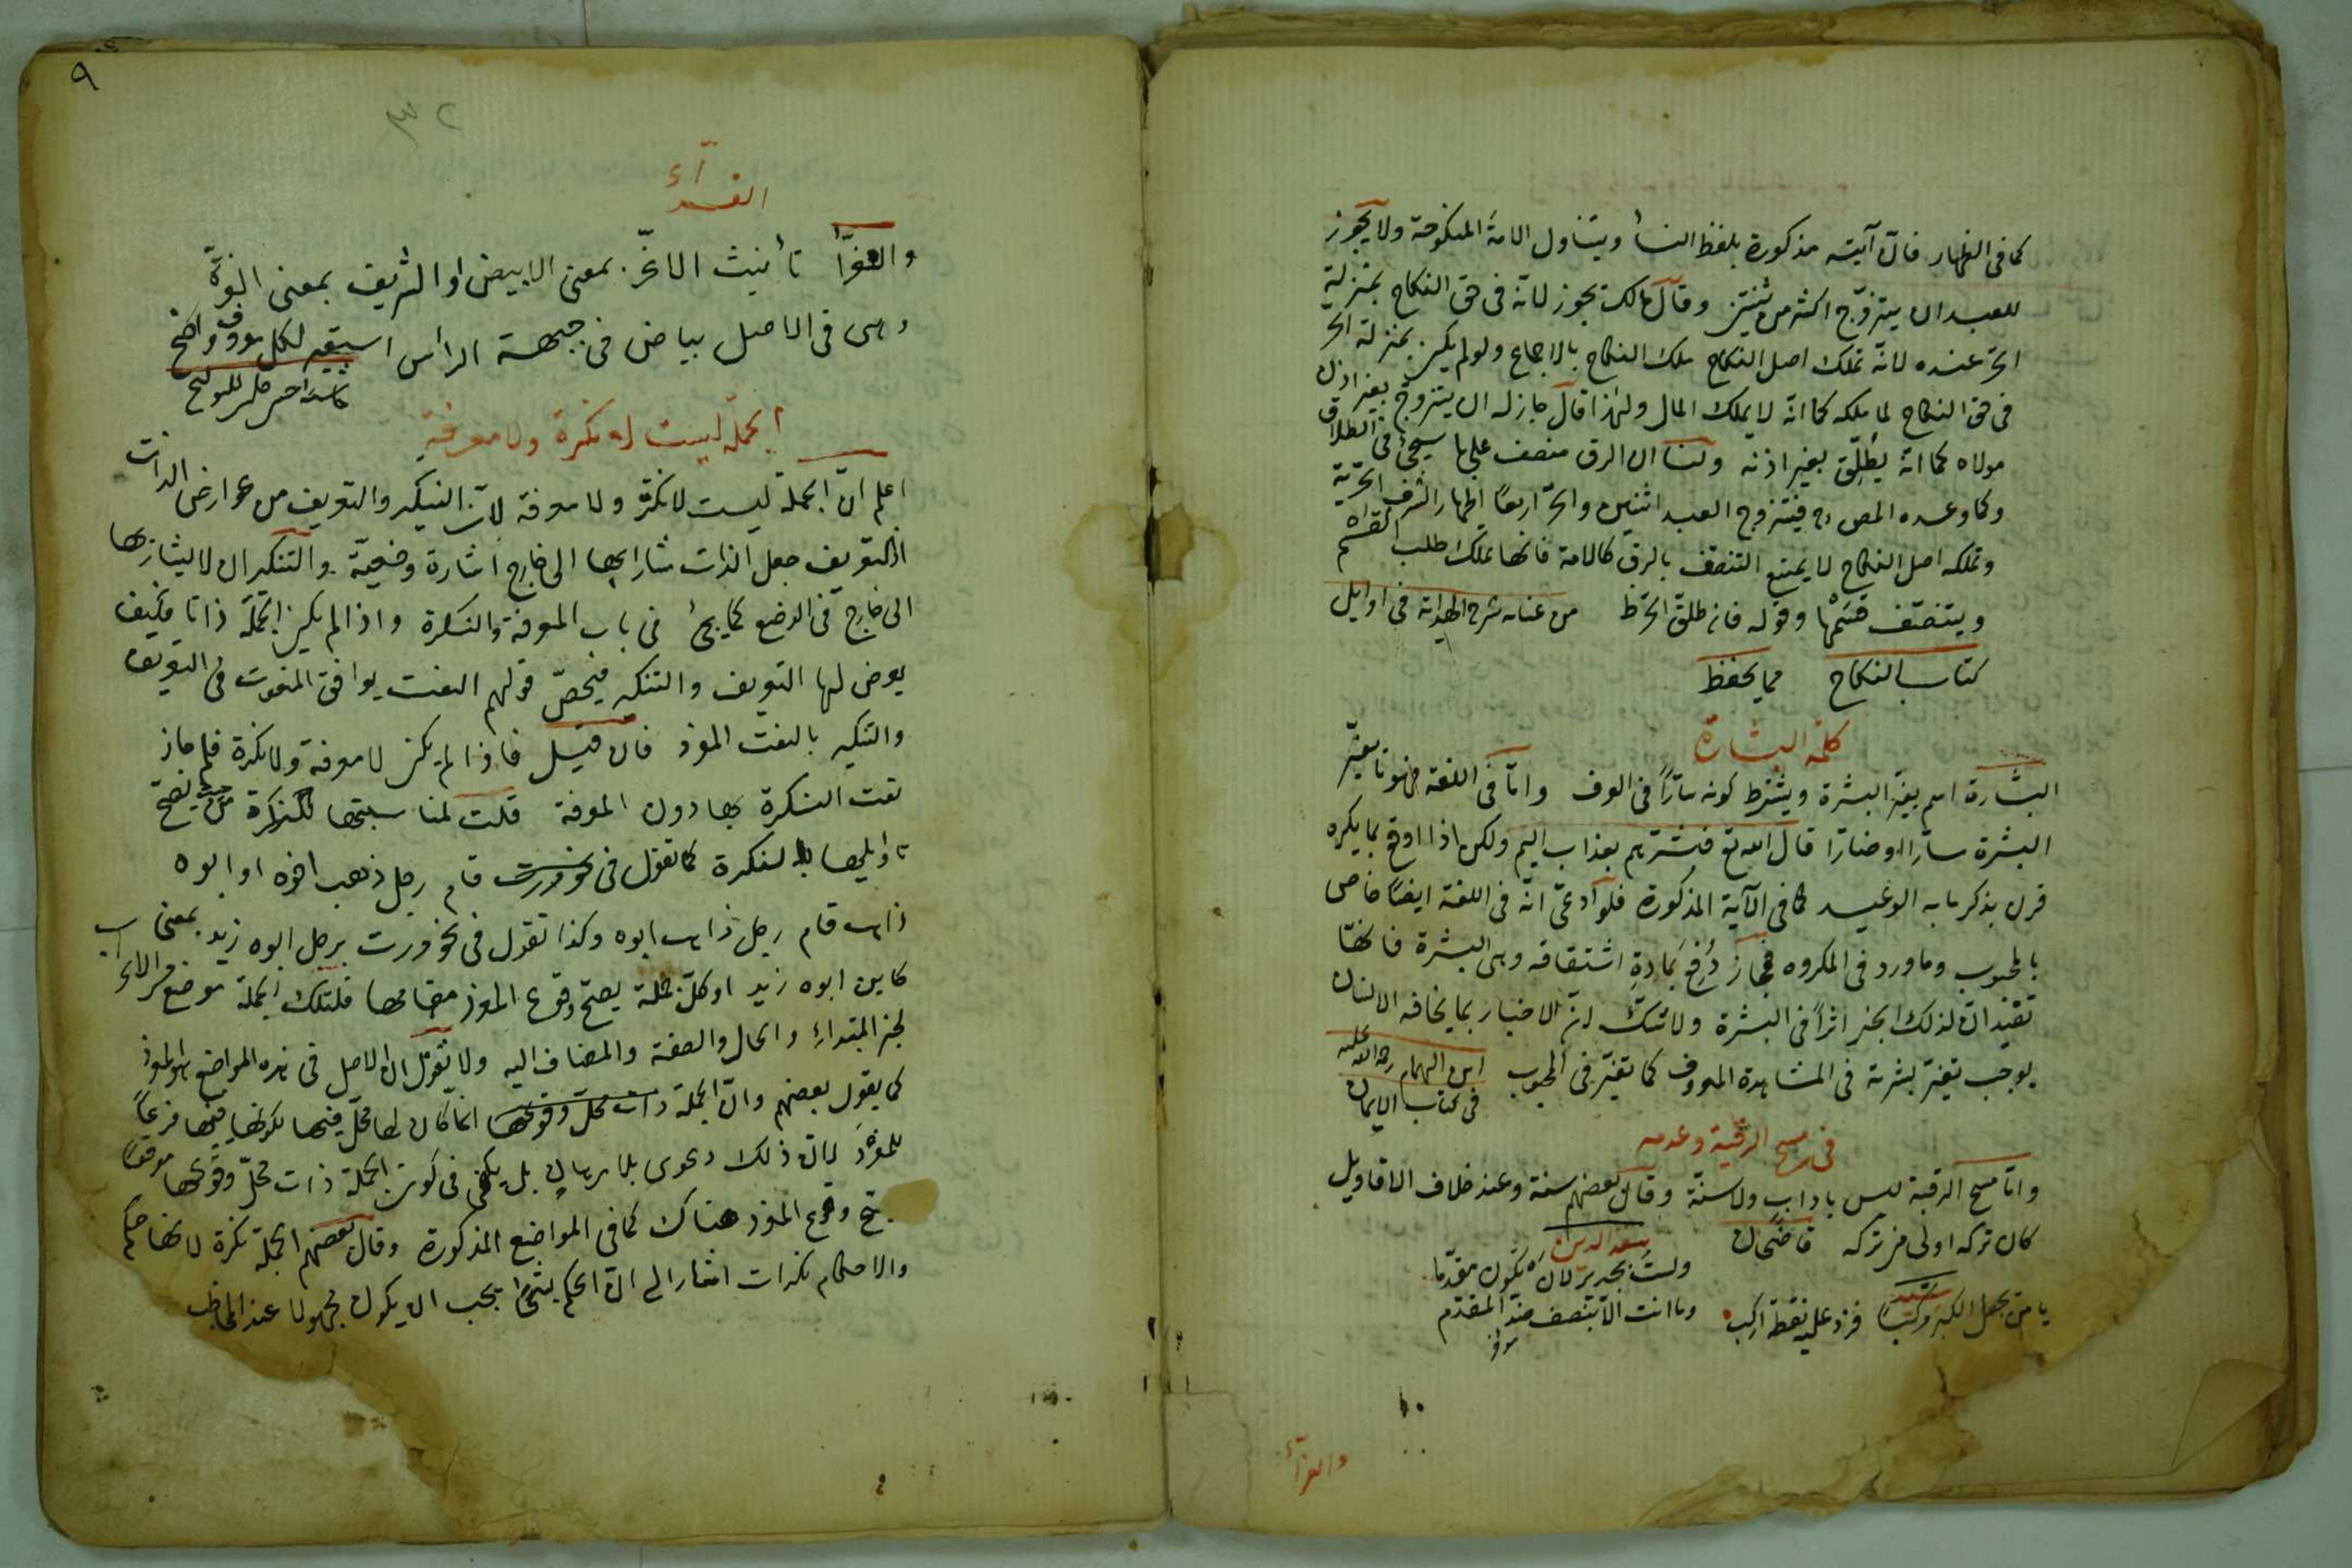 كما فى الظهار فان آيته مذكورة بلفظ النسأ ويتناول الامة المنكوحة ولا يجوز
للعبد ان يتزوّج اكثر من ثنتين وقال مالك يجوز لانّه فى حق النكاح بمنزلة
الحرّ عنده لانّه تملك اصل النكاح ملك النكاح بالاجماع ولو لم يكن بمنزلة الحرّ
فى حق النكاح لما ملكه كما انّه لا يملك المال ولهذا قال جاز له ان يتزوّج بغير اذن
مولاه كما انّه يُطلِّق بغير اذنه ولنا ان الرق منصف على ما سيجئ فى الطلاق
وكما وعده المص رح فيتزوج العبد اثنين والحرّ اربعًا اظهار الشرف الحرّية
وتملكه اصل النكاح لا يمنع التنصّف بالرق كالامة فانها تملك طلب القسم
ويتنصّف قسمُها وقوله فان طلّق الحرّ ط من عنايه شرح الهداية فى اوايل
كتاب النكاح مما يحفظ
كلمة البشارة
البشارة اسم بغيّر البشرة ويشترط كونه سارًّا فى العرف وامّا فى اللغة فهو ما يغيّر
البشرة سارّا او ضارّا قال الله تع فبشّرهم بعذاب اليم ولكن اذا اوقع بما يكره
قرن بذكر ما به الوعيد كما فى الآية المذكورة فلو ادعىّ انّه فى اللغة ايضًا خاص
بالمحبوب وما ورد فى المكروه فمجاز دُفِع بمادة اشتقاقه وهى البشرة فانها
تفيد انّ لذلك الخبر اثرًا فى البشرة ولا شكّ انّ الاخبار بما يخافه الانسان
يوجب تغيّر بشرته فى المشاهدة المعروف كما تغيّر فى المحبوب ابن الهمام رحمة الله عليه
فى كتاب الايمان
فى مسح الرقبة وعدمه
وامّا مسح الرقبة ليس بادآب ولا سنّة وقال بعضهم سنة وعند خلاف الاقاويل
كان تركه اولى من تركه قاضيخان
سعد الدين
ولست بجدير لان تكون مقدّما
يا من بجهل الكبر فزد عليه نقطة اركب وما انت الّا بنصف ضدّ المقدّم
والغرّآء
٩
٣٢
الغرّآء
والغرّآ تأنيث الاغرّ بمعنى الابيض او الشريف بمعنى الغرّة
وهى فى الاصل بياض فى جبهة الرأس استعير لكل معروف واضح
حسن جلبى للتلويح
الجملة ليست له نكرة ولا معرفة
اعلم انّ الجملة ليست لا نكرة ولا معرفة لانّ التنكير والتعريف من عوارض الذات
اذ التعريف جعل الذات مشارا بها الى خارج اشارة وضعيّة والتنكير ان لا يشار بها
الى خارج فى الوضع كما يجئ فى باب المعرفة والنكرة واذا لم يكن الجملة ذاتا فكيف
يعرض لها التعريف والتنكير فيخصّ قولهم النعت يوافق المنعوت فى التعريف
والتنكير بالنعت المفرد فان قيل فاذا لم يكن لا معرفة ولا نكرة فلم جاز
نعت النكرة بها دون المعرفة قلت لمناسبتها للنكرة من حيث يصح
تاويلها بالنكرة كما تقول فى نحو قام رجل ذهب اخوه او ابوه
ذاهب قام رجل ذاهب ابوه وكذا تقول فى نحو مررت برجل ابوه زيد بمعنى
كاين ابوه زيد او كلّ جملة يصحّ وقوع المفرد مقامها فلتلك الجملة موضع من الاعراب
لخبر المبتداء والحال والصفة والمضاف اليه ولا نقول ان الاصل فى هذه المواضع هو المفرد
كما يقول بعضهم وانّ الجملة ذات محلّ وقوعها انما كان لها محلّ فيها لكونها فيها فرعًا
للمفرد لان ذلك دعوى بلا برهان بل يكفى فى كون الجملة ذات محلّ وقوعها موقعًا
صحّ وقوع المفرد هناك كما فى المواضع المذكورة وقال بعضهم الجملة نكرة لانها حكم
والاحكام نكرات اشار الى انّ الحكم بشئ يجب ان يكون مجهولا عند المخاطب